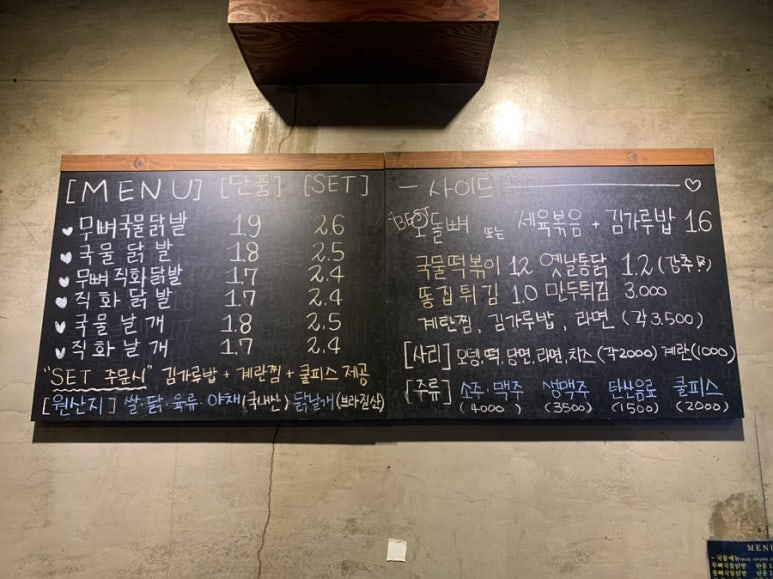 [MENU] [단품] [SET]
무뼈국물닭발 1.9 2.6
국물닭발 1.8 2.5
무뼈직화닭발 1.7 2.4
직화닭발 1.7 2.4
국물날개 1.8 2.5
직화날개 1.7 2.4
"SET 주문시" 김가루밥 + 계란찜 + 쿨피스 제공
[원산지] 쌀·닭·육류·야채(국내산) 닭날개(브라질산)
- 사이드 ♡
"BEST" 오돌뼈 또는 제육볶음 + 김가루밥 1.6
국물떡볶이 1.2 옛날통닭 1.2 (강추!!)
똥집튀김 1.0 만두튀김 3.000
계란찜, 김가루밥, 라면 (각3.500)
[사리] 오뎅,떡,당면,라면,치즈(각2000) 계란(1000)
[주류] 소주·맥주 생맥주 탄산음료 쿨피스
(4000) (3500) (1500) (2000)
MENU